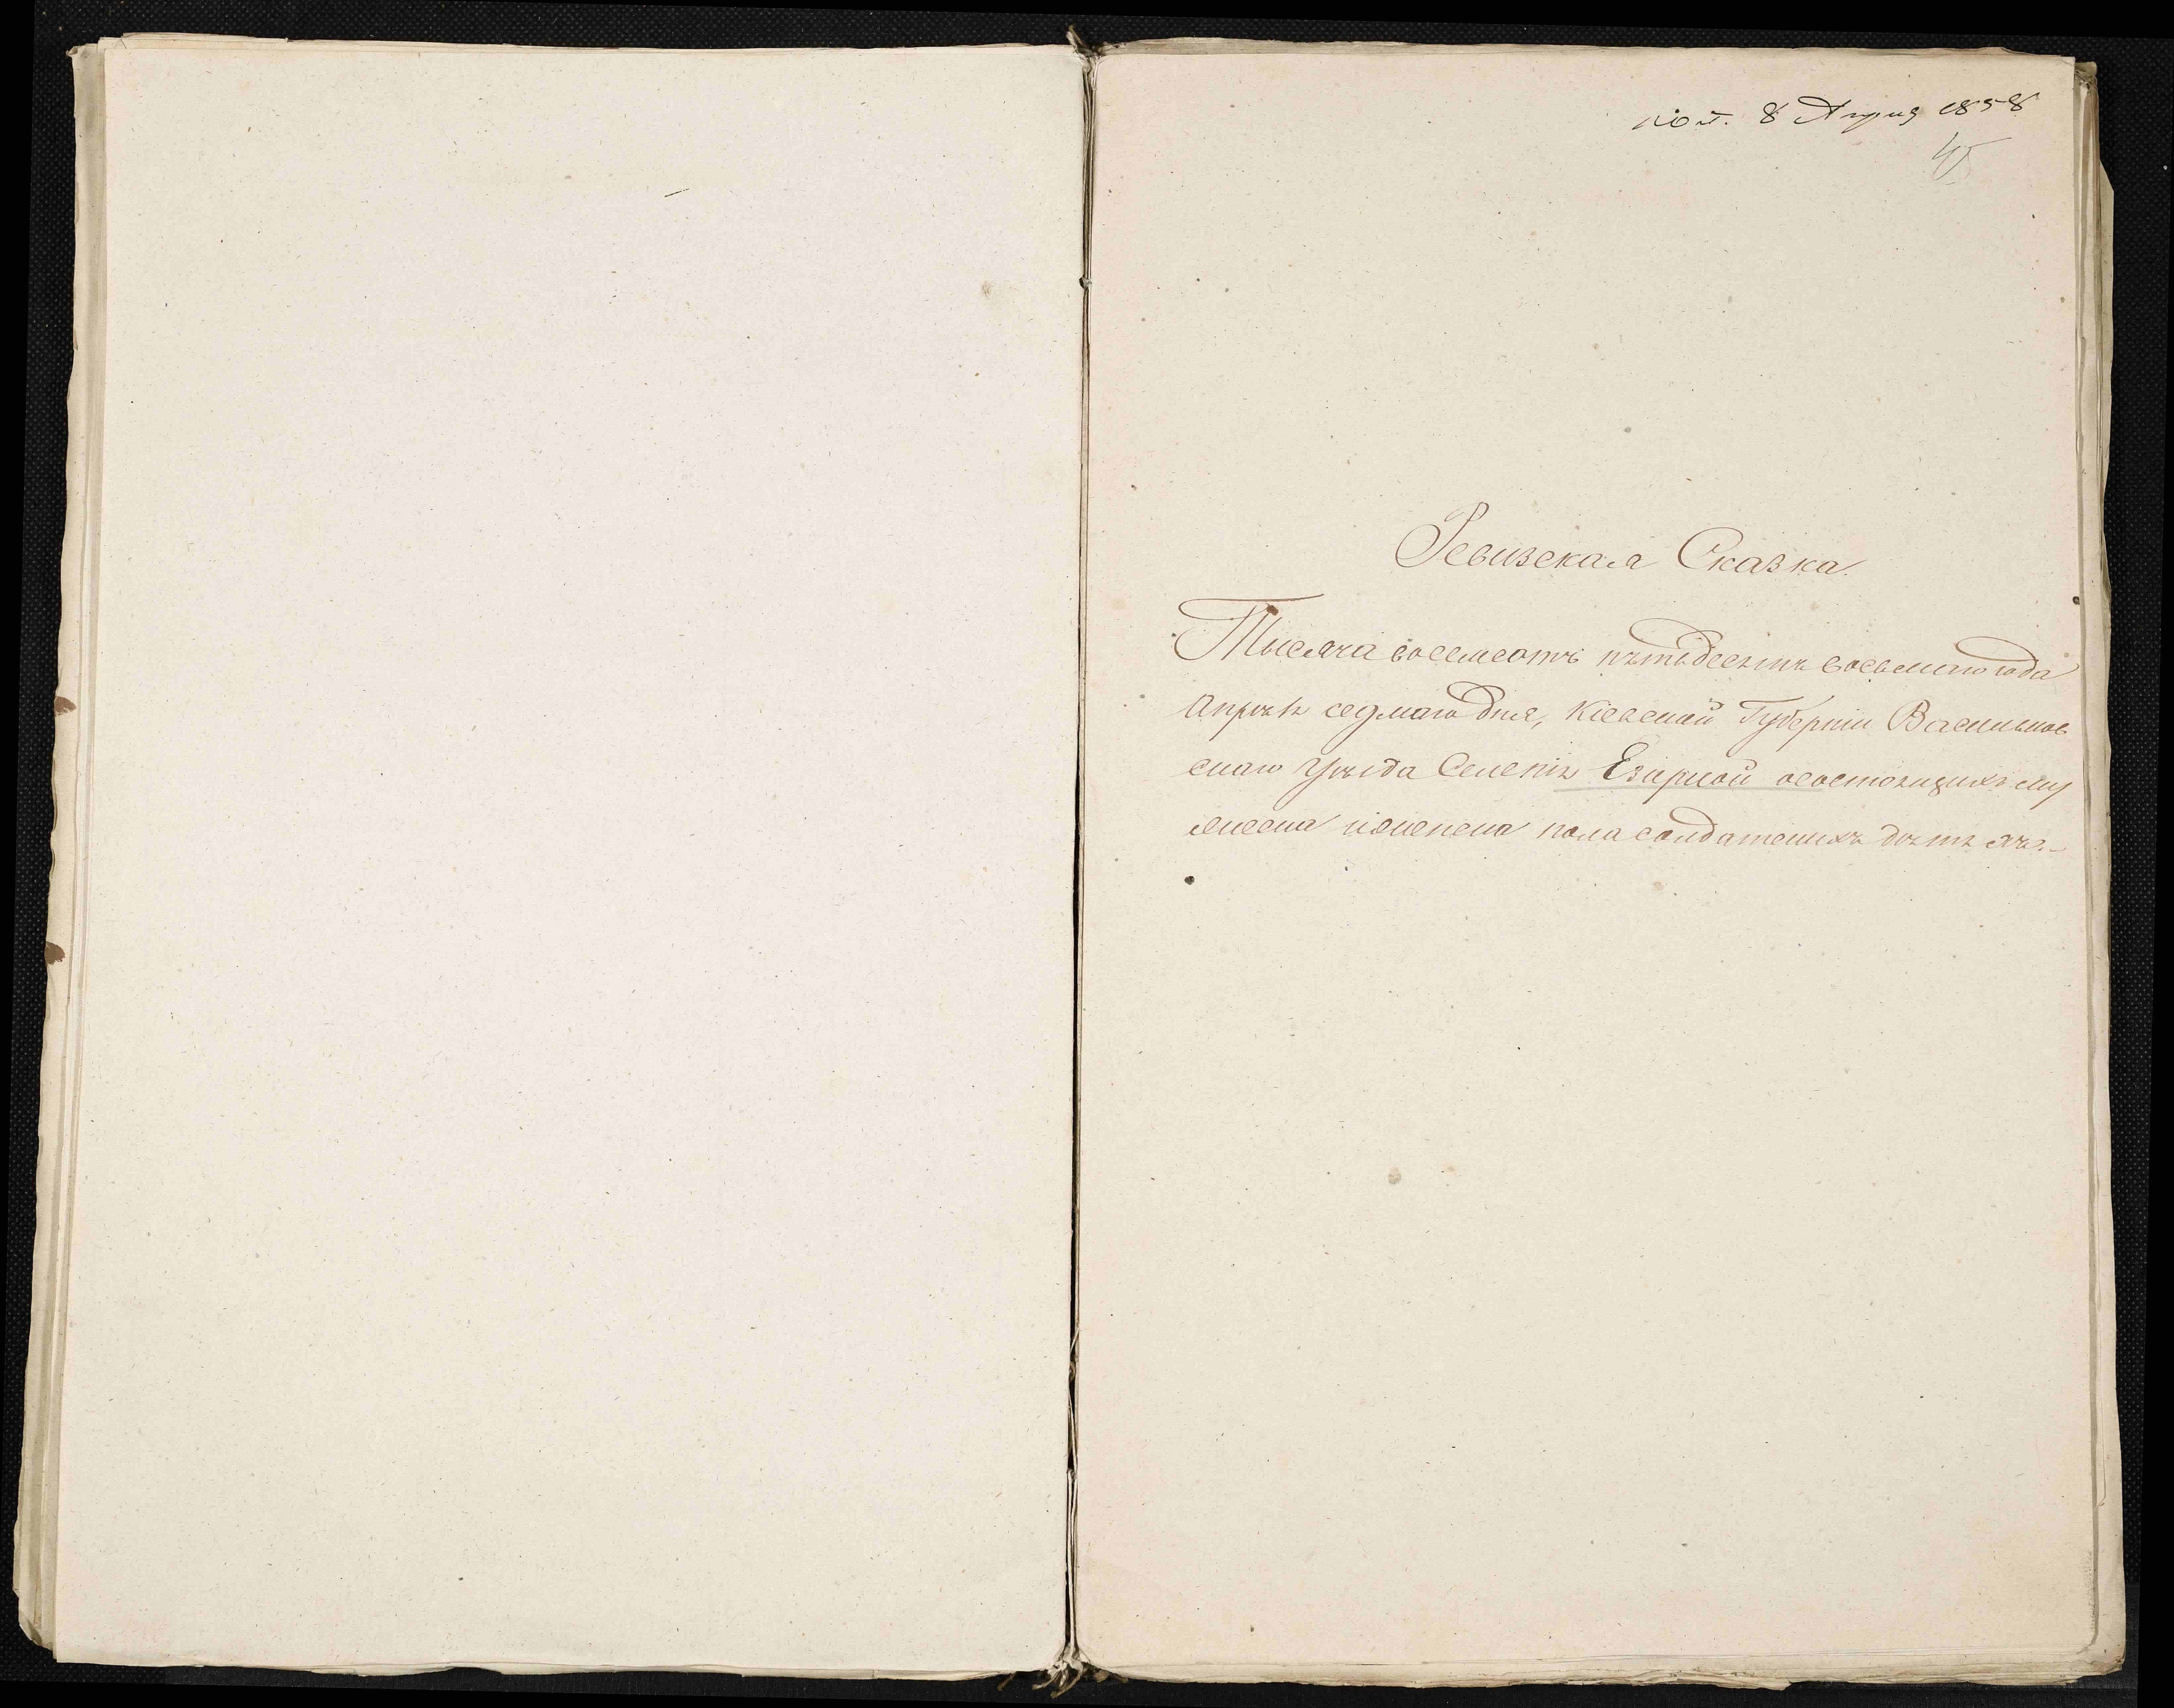 8 Апреля 1858
45
Ревизская Сказка.
Тысяча восемсотъ пятьдесятъ восьмаго года
Апреля седмаго дня, Кіевской Губерніи Васильков
скаго Уѣзда Селенія Езерной осостоящихъ му
жеска иженска пола солдатскихъ дѣтяхъ.